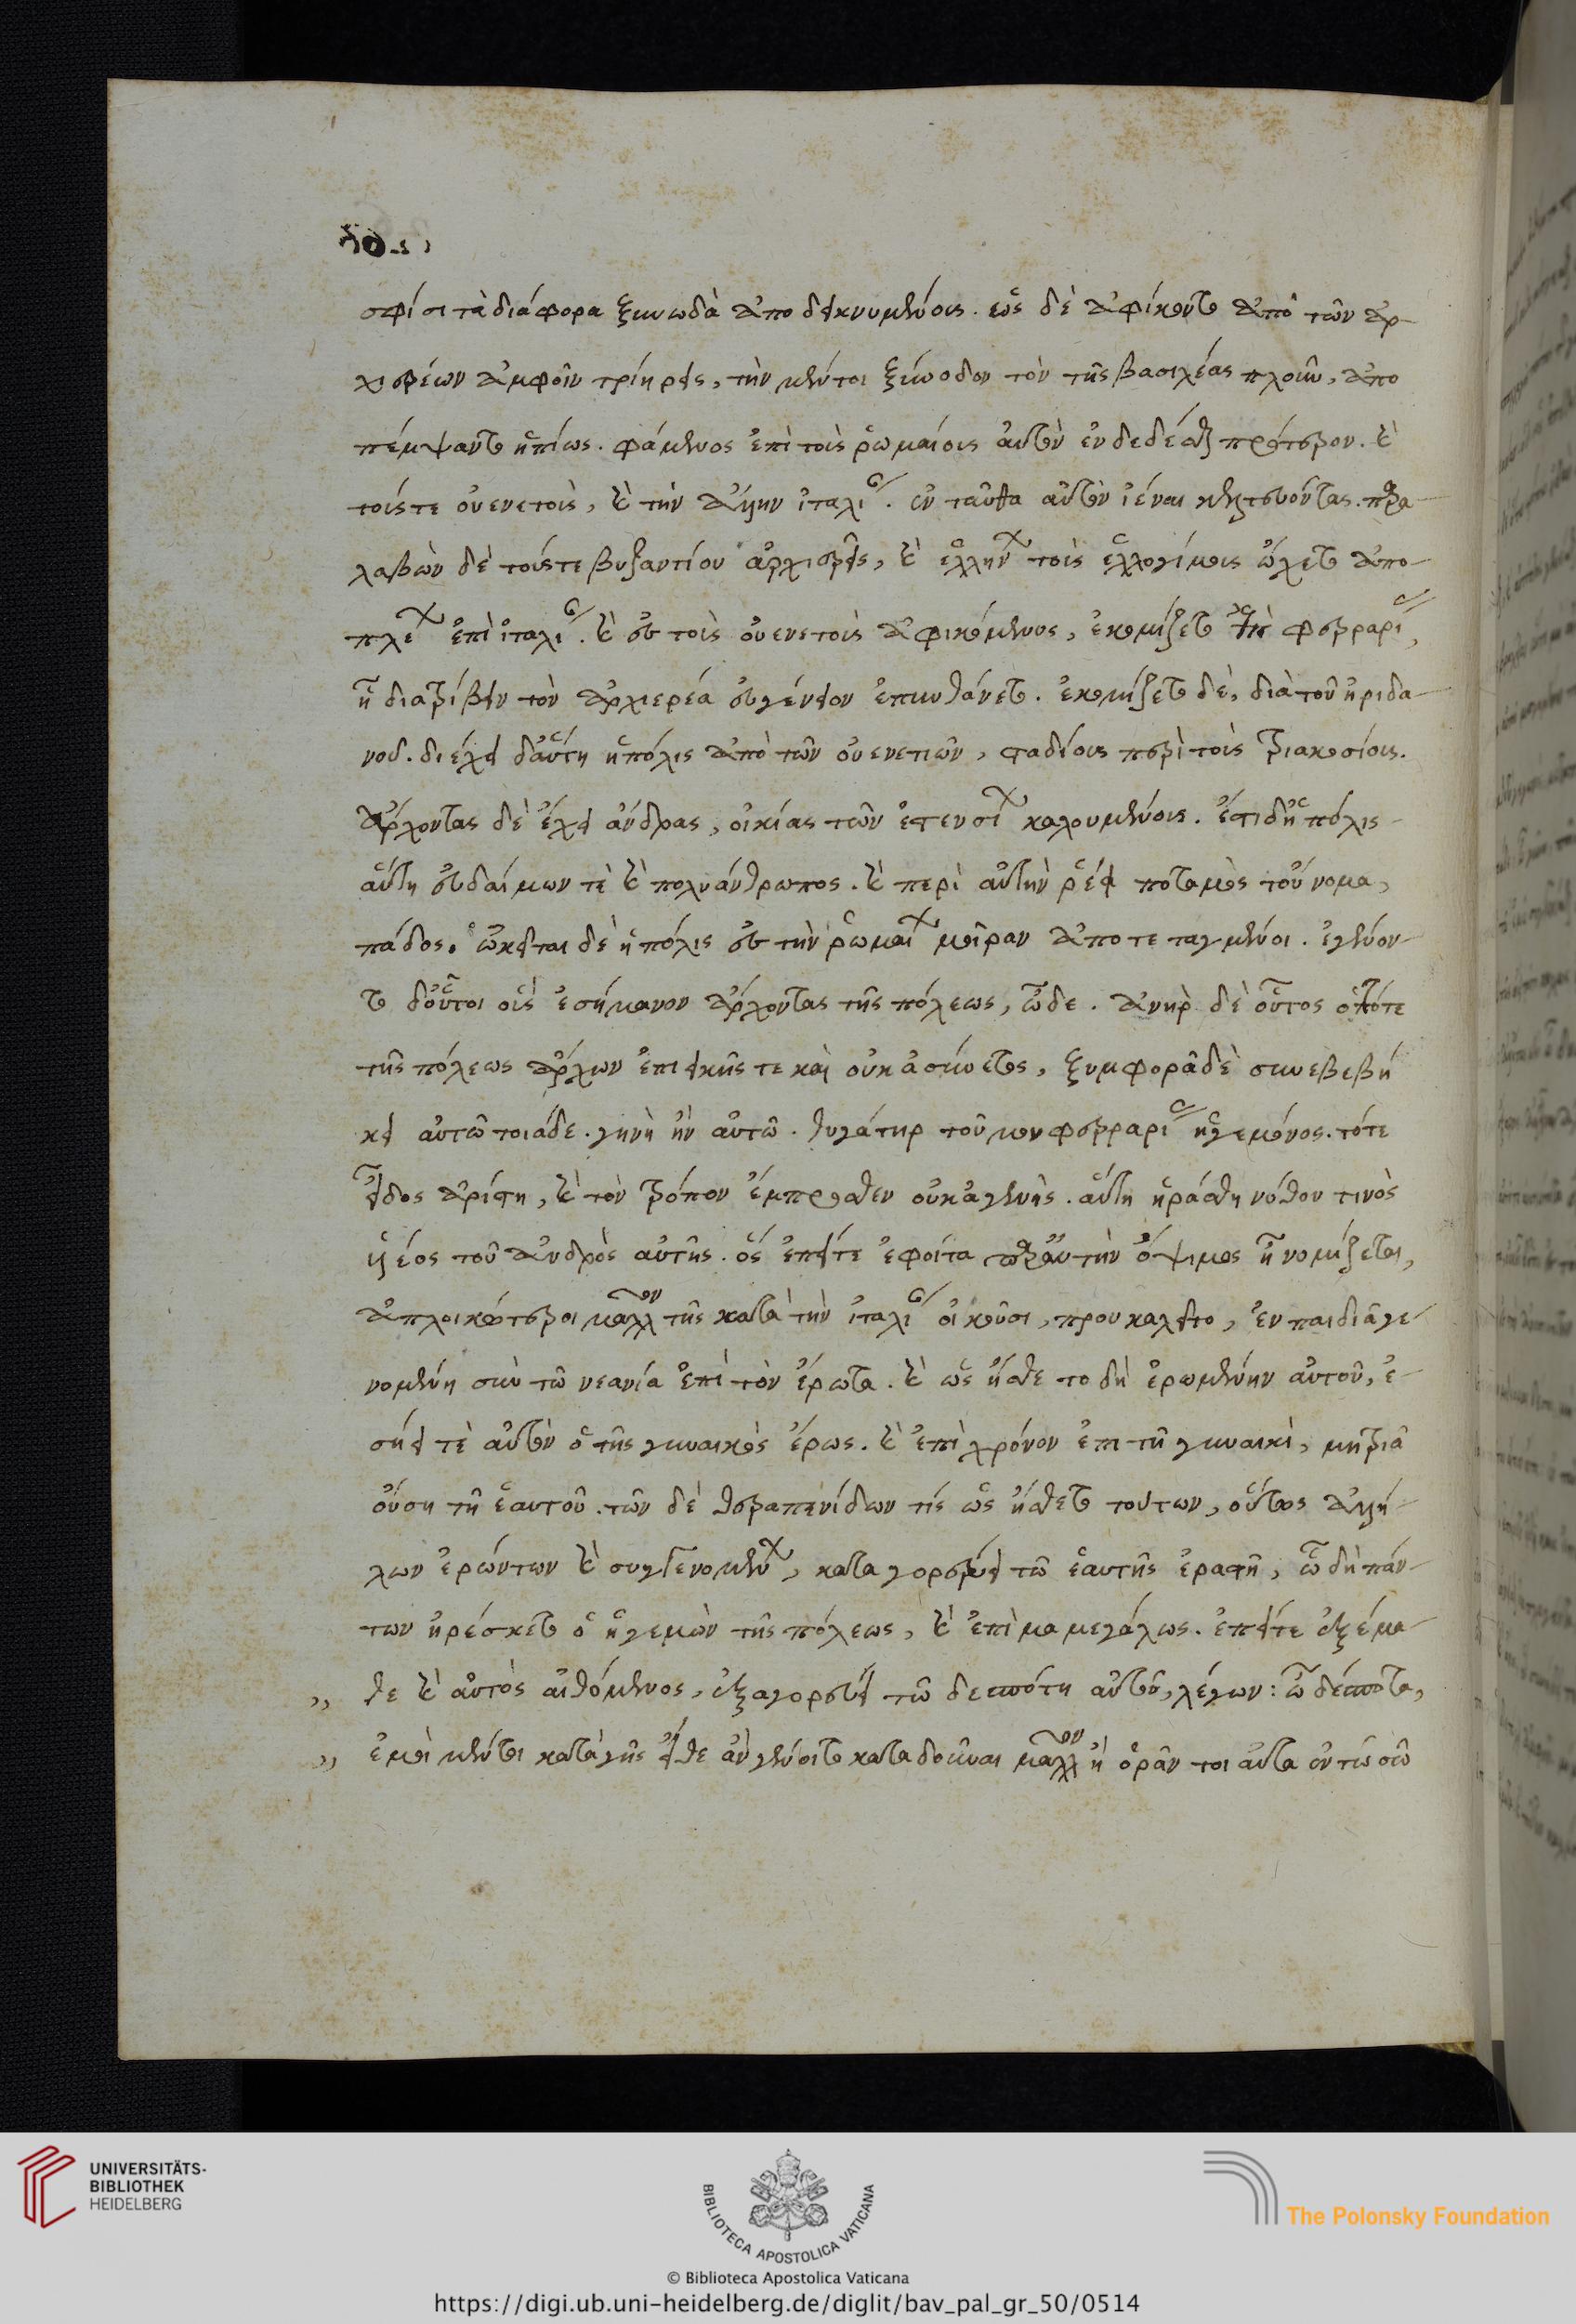 σφίσι τὰ διάφορα ξυνῳδὰ ἀποδεικνυμένοις. ὡς δὲ ἀφίκοντο ἀπὸ τῶν ἀρ-
χιερέων ἀμφοῖν τριήρεις, τὴν μέντοι ξύνοδον τὸν τῆς βασιλέας πλοῦν, ἀπο
πέμψαντο ἠπίως. φάμενος ἐπὶ τοὶς ῥωμαίοις αὐτὸν ἐνδεδέσθαι πρότερον. καὶ
τοίς τε οὐενετοὶς, καὶ τὴν ἄλλην ἰταλίαν. ἐνταῦθα αὐτὸν ἰέναι μετιόντας. παρα-
λαβὼν δὲ τούς τε βυζαντίου ἀρχιερεῖς, καὶ ἑλλήνων τοὶς ἐλλογίμοις ᾤχετο ἀπο-
πλέων ἐπὶ ἰταλίαν. καὶ εὐ τοὶς οὐενετοὶς ἀφικόμενος, ἐκομίζετο ἐπὶ φερραρίας,
ᾗ διατρίβειν τὸν ἀρχιερέα εὐγένειον ἐπυνθάνετο. ἐκομίζετο δὲ, διὰ τοῦ ἠριδα-
νοῦ. διέχει δ' αὕτη ἡ πόλις ἀπὸ τῶν οὐενετιῶν, σταδίοις περὶ τοὶς τριακοσίοις.
ἄρχοντας δὲ ἔχει ἄνδρας, οἰκίας τῶν ἐστενσίων καλουμένοις. ἔστι δ' ἡ πόλις
αὕτη εὐδαίμων τὲ καὶ πολυάνθρωπος. καὶ περὶ αὐτὴν ῥέει ποταμὸς τοὔνομα,
πάδος. ᾤκεισται δὲ ἡ πόλις εὐ τὴν ῥωμαίων μοῖραν ἀποτεταγμένοι. ἐγένον-
το δ' οὗτοι οἷς ἐσήμανον ἄρχοντας τῆς πόλεως, ὧδε. ἀνὴρ δὲ οὗτος ὁπότε
τῆς πόλεως ἄρχων ἐπιεικής τε καὶ οὐκ ἀσύνετος, ξυμφορᾶ δὲ συνεβεβή
κει αὐτῶ τοιάδε. γυνὴ ἦν αὐτῶ. θυγάτηρ τοῦ μονφερραρίας ἡγεμόνος. τότε
εἶδος ἀρίστη, καὶ τὸν τρόπον ἔμπροσθεν οὐκ ἀγενής. αὕτη ἠράσθη νόθου τινὸς
υἱέος τοῦ ἀνδρὸς αὐτῆς. ὃς ἐπείτε ἐφοίτα παρ' αὐτὴν ὄψιμος ᾗ νομίζεται,
ἁπλοικώτεροι μᾶλλον τῆς κατὰ τὴν ἰταλίαν οἰκοῦσι, προυκαλεῖτο, ἐν παιδιᾶ γε-
νομένη σὺν τῶ νεανία ἐπὶ τὸν ἔρωτα. καὶ ὡς ᾔσθετο δὴ ἐρωμένην αὐτοῦ, ἐ-
σήει τὲ αὐτὸν ὁ τῆς γυναικὸς ἔρως. καὶ ἐπὶ χρόνον ἐπὶ τῆ γυναικὶ, μητριᾶ
οὔση τῆ ἑαυτοῦ. τῶν δὲ θεραπενίδων τίς ὡς ᾔσθετο τούτων, οὕτως ἀλλή-
λων ἐρώντων καὶ συγγενομένων, καταγορεύει τῶ ἑαυτῆς ἐραστῆ, ὧ δὴ πάν-
των ἠρέσκετο ὁ ἡγεμὼν τῆς πόλεως, καὶ ἐπίμα μεγάλως. ἐπείτε ἐξέμα-
„ θε καὶ αὐτὸς αἰσθόμενος, ἐξαγορεύει τῶ δεσπότη αὐτοῦ, λέγων: ὦ δέσποτα,
„ ἐμοὶ μέντοι κατὰ γῆς εἴθε ἂν γένοιτο καταδοῦναι μᾶλλον ἢ ὁρᾶν τοιαῦτα ἐν τῶ σῶ
UNIVERSITÄTS-
BIBLIOTHEK
HEIDELBERG
BIBLIOTECA APOSTOLICA VATICANA
The Polonsky Foundation
© Biblioteca Apostolica Vaticana
https://digi.ub.uni-heidelberg.de/diglit/bav_pal_gr_50/0514